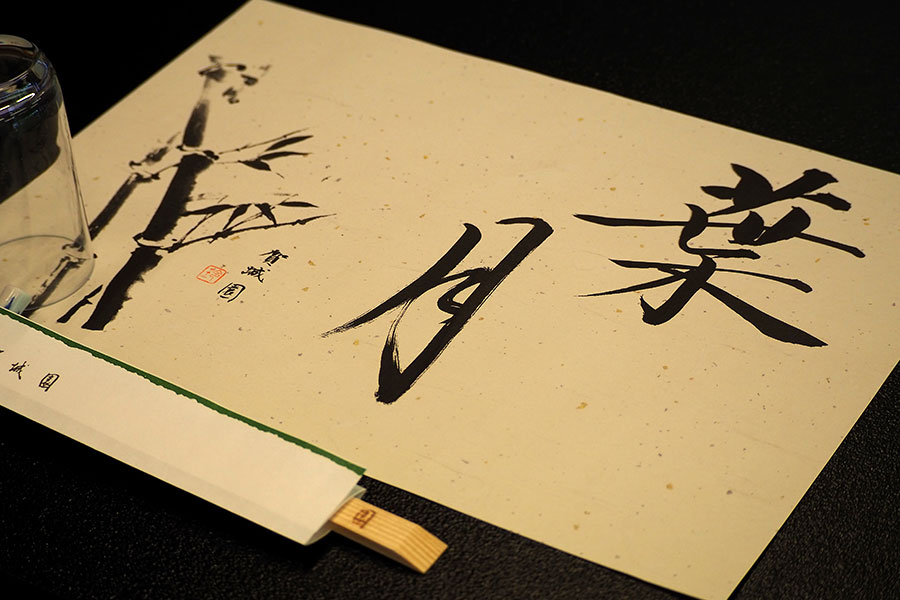 葉月
賀城園
城園